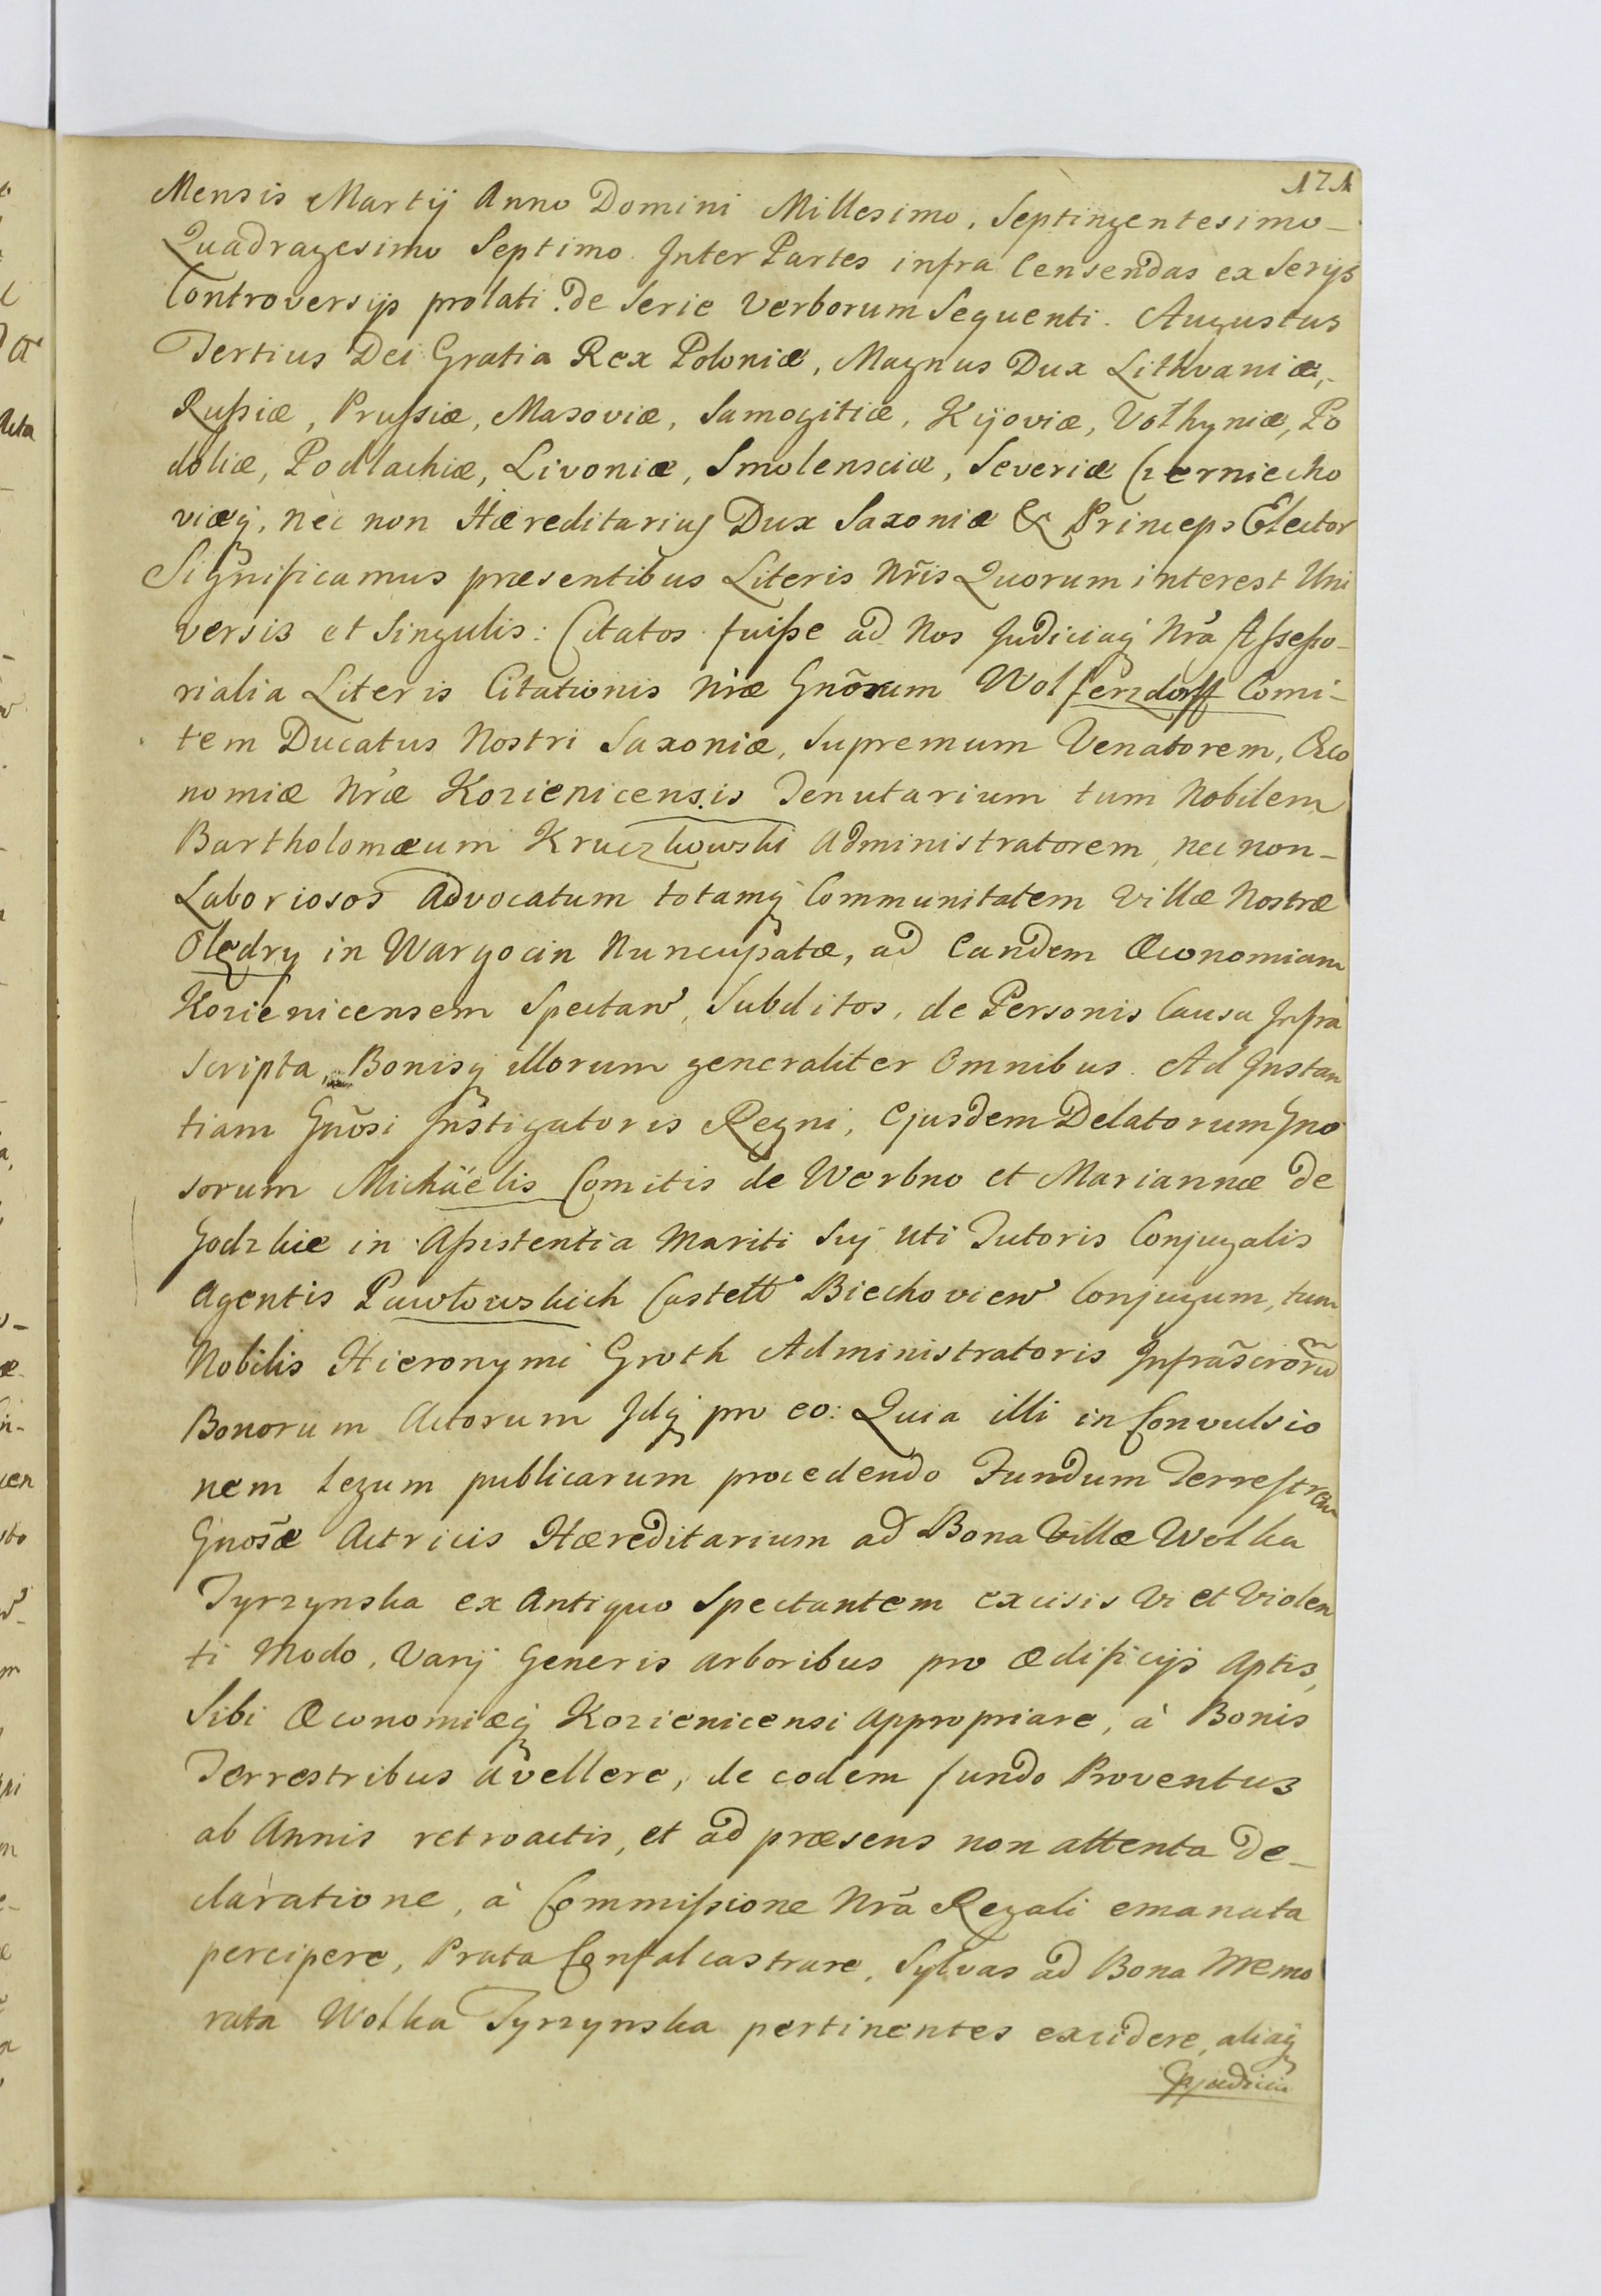 171
Mensis Martij Anno Domini Millesimo, Septingentesimo-
Quadragesimo Septimo. Inter Partes infra Censendas ex Serijs
Controversijs prolati. de Serie Verborum Sequenti. Augustus
Tertius Dei Gratia Rex Poloniæ, Magnus Dux Lithvaniæ,-
Rußiæ, Prußiæ, Masoviæ, Samogitiæ, Kijoviæ, Volhyniæ, Po
doliæ, Podlachiæ, Livoniæ, Smolensciæ, Severiæ Czerniecho
viæq, nec non Hæreditarius Dux Saxoniæ & Princeps Elector
Significamus præsentibus Literis Nris Quorum interest Uni
versis et Singulis: Citatos fuiße ad Nos Judiciaq Nra Aßeßo-
rialia Literis Citationis Nræ Gnõrum Wolferzdorff Comi-
tem Ducatus Nostri Saxoniæ, Supremum Venatorem, Œco
nomiæ Nræ Kozienicensis Tenutarium tum Nobilem
Bartholomæum Kruczkowski Administratorem, nec non-
Laboriosos Advocatum totamq Communitatem Villæ Nostræ
Olędry in Wargocin Nuncupatæ, ad Eandem Œconomiam
Kozienicensem Spectan, Subditos, de Personis Causa Infra
scripta, Bonisq illorum generaliter Omnibus. Ad Instan
tiam Gnõsi Instigatoris Regni, Ejusdem Delatorum Gno
sorum Michaëlis Comitis de Werbno et Mariannæ de
Godzkie in Aßistentia Mariti Sui uti Tutoris Conjugalis
Agentis Pawłowskich Castell Biechovien Conjugum, tum
Nobilis Hieronymi Groth Administratoris Infrascrorum
Bonorum Actorum Idq pro eo: Quia illi in Convulsio
nem Legum publicarum procedendo Fundum Terrestrem
Gnosæ Actricis Hæreditarium ad Bona Villæ Wolka
Tyrzynska ex Antiquo Spectantem excisis Vi et Violen
ti Modo, Varij Generis arboribus pro Ædificijs aptis,
Sibi Œconomiæq Kozienicensi appropriare, à Bonis
Terrestribus avellere, de eodem fundo Proventus
ab Annis retroactis, et ad præsens non attenta De-
claratione, à Commißione Nrã Regali emanata
percipere, Prata Confalcastrare, Sylvas ad Bona Memo
rata Wolka Tyrzynska pertinentes excidere, aliaq